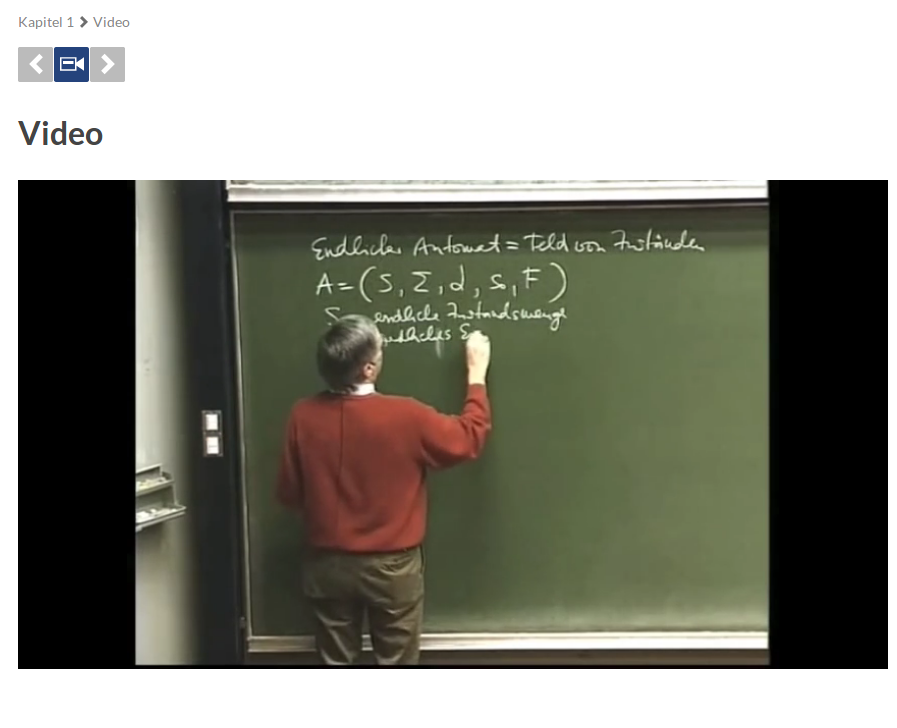 Kapitel 1 > Video
Video
Endlicher Automat = Feld von Zuständen
A = (S, Σ, d, s₀, F)
S endliche Zustandsmenge
endliches E